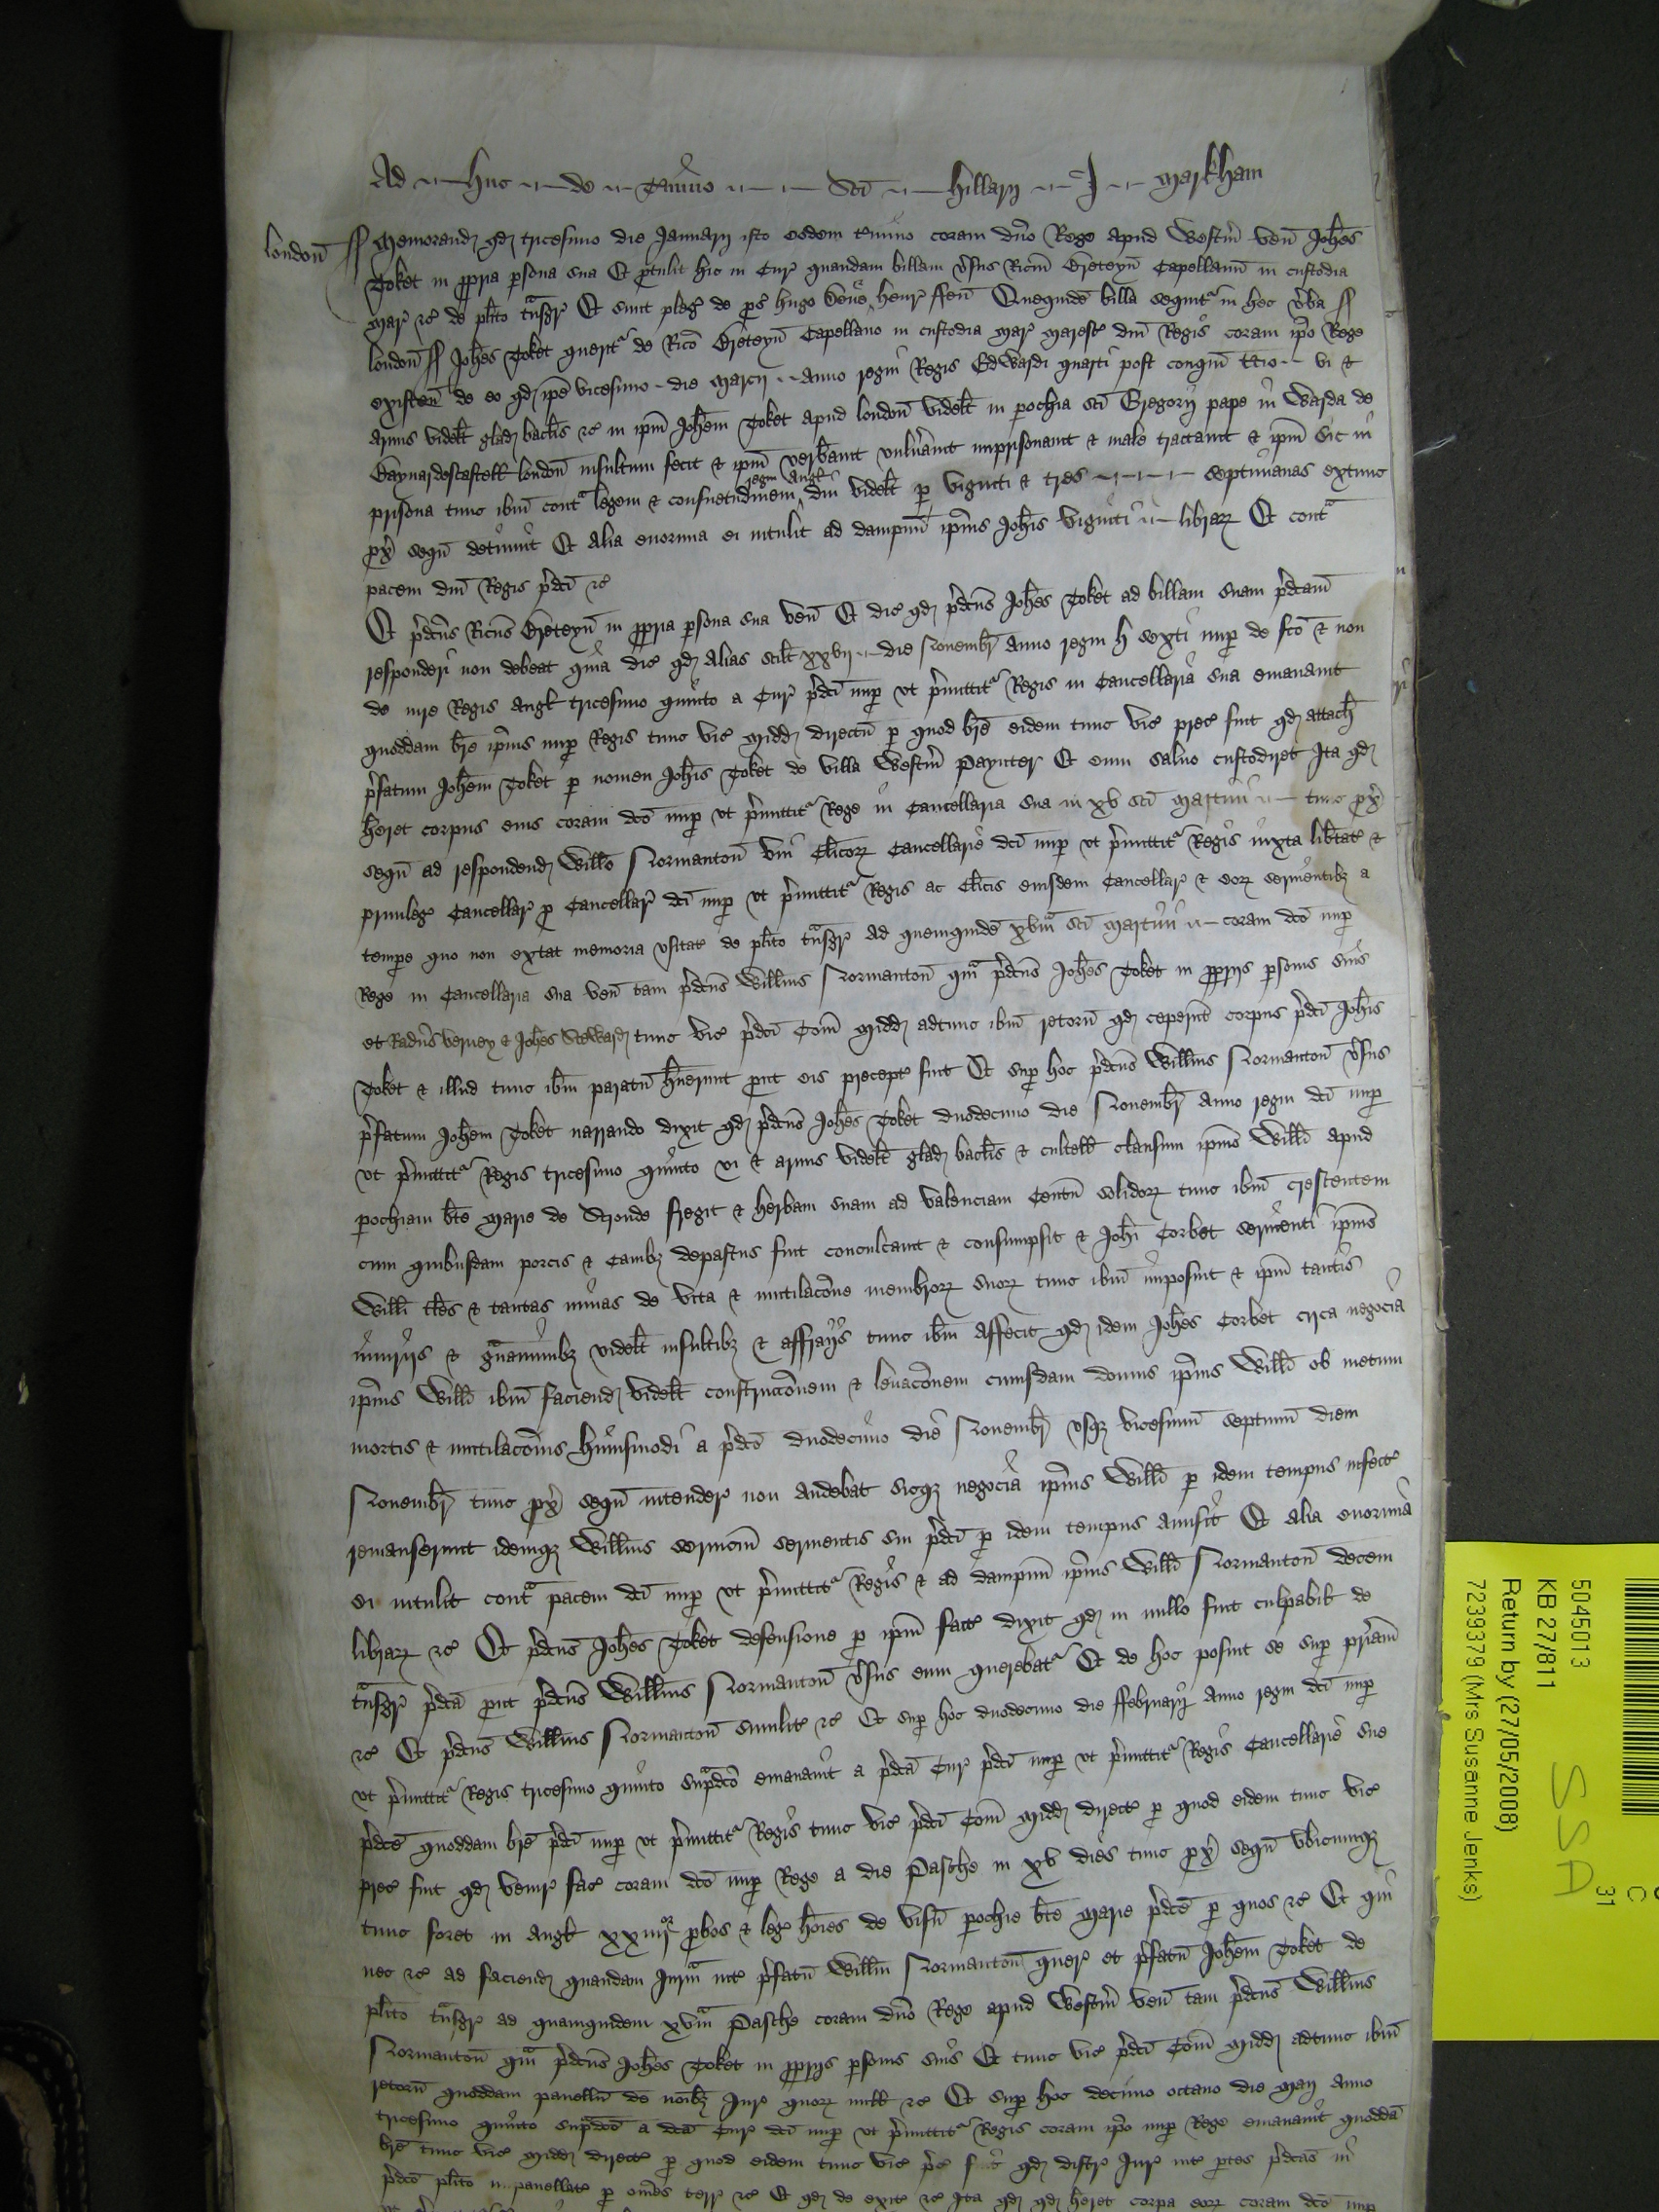 Ad huc de Termino Sci Hillarij J Markham
london ff Memorand qd tricesimo die Januarij isto eodem termino coram dno Rege apud Westm ven Johes
Toket in ppria psona sua Et ptulit hic in Cur quandam billam vsus Ricm Breteyn Capellanu in custodia
mar &c de plito tnsgr Et sunt pleg de ps Hugo henr ffen Quequide billa sequit in hec vba ff
london ff Johes Toket querit de Rico Breteyn Capellano in custodia mar maresc dni Regis coram ipo Rege
existen de eo qd ipe vicesimo die marcij anno regni Regis Edwardi quarti post conqm tcio vi &
armis videlt glad baclis &c in ipm Johem Toket apud london videlt in pochia sci Gregorij pape in Warda de
Baynardescastell london insultum fecit & ipm verbauit vulnauit imprisonauit & male tractauit & ipm sic in
prisona tunc ibm cont legem & consuetudinem regni Angl dni videlt p viginti & tres septimanas extunc
px sequ detinuit Et alia enormia ei intulit ad dampnu ipius Johis viginti librar Et cont
pacem dni Regis pdci &c
Et pdcus Ricus Breteyn in ppria psona sua ven Et dic qd pdcus Johes Toket ad billam suam pdcam
responderi non debeat quia dic qd alias scilt xxvij die Nouembr anno regni H sexti nup de fco & non
de iure Regis Angl tricesimo quinto a Cur pdci nup vt pmittit Regis in Cancellaria sua emanauit
quoddam bre ipius nup Regis tunc vic Midd directu p quod bre eidem tunc vic prec fuit qd attach
pfatum Johem Toket p nomen Johis Toket de villa Westm Paynter Et eum saluo custodiret Ita qd
heret corpus eius coram dco nup vt pmittit Rege in Cancellaria sua in xv sci Martini tunc px
sequ ad respondend Willo Normanton vni Clicor Cancellarie dci nup vt pmittit Regis iuxta libtat &
priuileg Cancellar p Cancellar dci nup vt pmittit Regis ac Clicis eiusdem Cancellar & eor seruientib a
tempe quo non extat memoria vsitat de plito tnsgr Ad quemquide xvm sci Martini coram dco nup
Rege in Cancellaria sua ven tam pdcus Willmus Normanton qm pdcus Johes Toket in pprijs psonis suis
et Radus Verney & Johes Steward tunc vic pdci Com Midd adtunc ibm retorn qd ceperut corpus pdci Johis
Toket & illud tunc ibm paratu huerunt put eis precept fuit Et sup hoc pdcus Willmus Normanton vsus
pfatum Johem Toket narrando dixit qd pdcus Johes Toket duodecimo die Nouembr anno regni dci nup
vt pmittit Regis tricesimo quinto vi & armis videlt glad baclis & cultell clausum ipius Willi apud
pochiam bte Marie de Stronde fregit & herbam suam ad valenciam Centu solidor tunc ibm crescentem
cum quibusdam porcis & Canib depastus fuit conculcauit & consumpsit & Johi Corbet seruienti ipius
Willi tles & tantas minas de vita & mutilacone membror suor tunc ibm imposuit & ipm tantis
iniurijs & guaminib videlt insultib & affraijs tunc ibm affecit qd idem Johes Corbet circa negocia
ipius Willi ibm faciend videlt construcconem & leuaconem cuiusdam domus ipius Willi ob metum
mortis & mutilaconis huiusmodi a pdco duodecimo die Nouembr vsq vicesimu septimu diem
Nouembr tunc px sequ intender non audebat sicq negocia ipius Willi p idem tempus infect
remanserunt idemq Willmus seruiciu seruientis sui pdci p idem tempus amisit Et alia enormia
ei intulit cont pacem dci nup vt pmittit Regis & ad dampnu ipius Willi Normanton decem
librar &c Et pdcus Johes Toket defensione p ipm fact dixit qd in nullo fuit culpabil de
tnsgr pdca put pdcus Willmus Normanton vsus eum querebat Et de hoc posuit se sup priam
&c Et pdcus Willmus Normanton similit &c Et sup hoc duodecimo die ffebruarij anno regni dci nup
vt pmittit Regis tricesimo quinto supdco emanauit a pdca Cur pdci nup vt pmittit Regis Cancellarie sue
pdce quoddam bre pdci nup vt pmittit Regis tunc vic pdci Com Midd direct p quod eidem tunc vic
prec fuit qd venir fac coram dco nup Rege a die Pasche in xv dies tunc px sequ vbicumq
tunc foret in Angl xxiiijor pbos & leg hoies de visu pochie bte Marie pdce p quos &c Et qui
nec &c ad faciend quandam Jurm int pfatu Willm Normanton quer et pfatu Johem Toket de
plito tnsgr ad quamquidem xvm Pasche coram dno Rege apud Westm ven tam pdcus Willmus
Normanton qm pdcus Johes Toket in pprijs psonis suis Et tunc vic pdci Com Midd adtunc ibm
retorn quoddam panellu de noib Jur quor null &c Et sup hoc decimo octauo die Maij anno
tricesimo quinto supdco a dca Cur dci nup vt pmittit Regis coram ipo nup Rege emanauit quodda
bre tunc vic Midd direct p quod eidem tunc vic pc fuit qd distr Jur int ptes pdcas in
pdco plito impanellat p omes terr &c Et qd de exit &c Ita qd heret corpa eor coram dco nup
5045013
KB 27/811
Return by (27/05/2008)
723979 (Mrs Susanne Jenks)
SSA
C
31